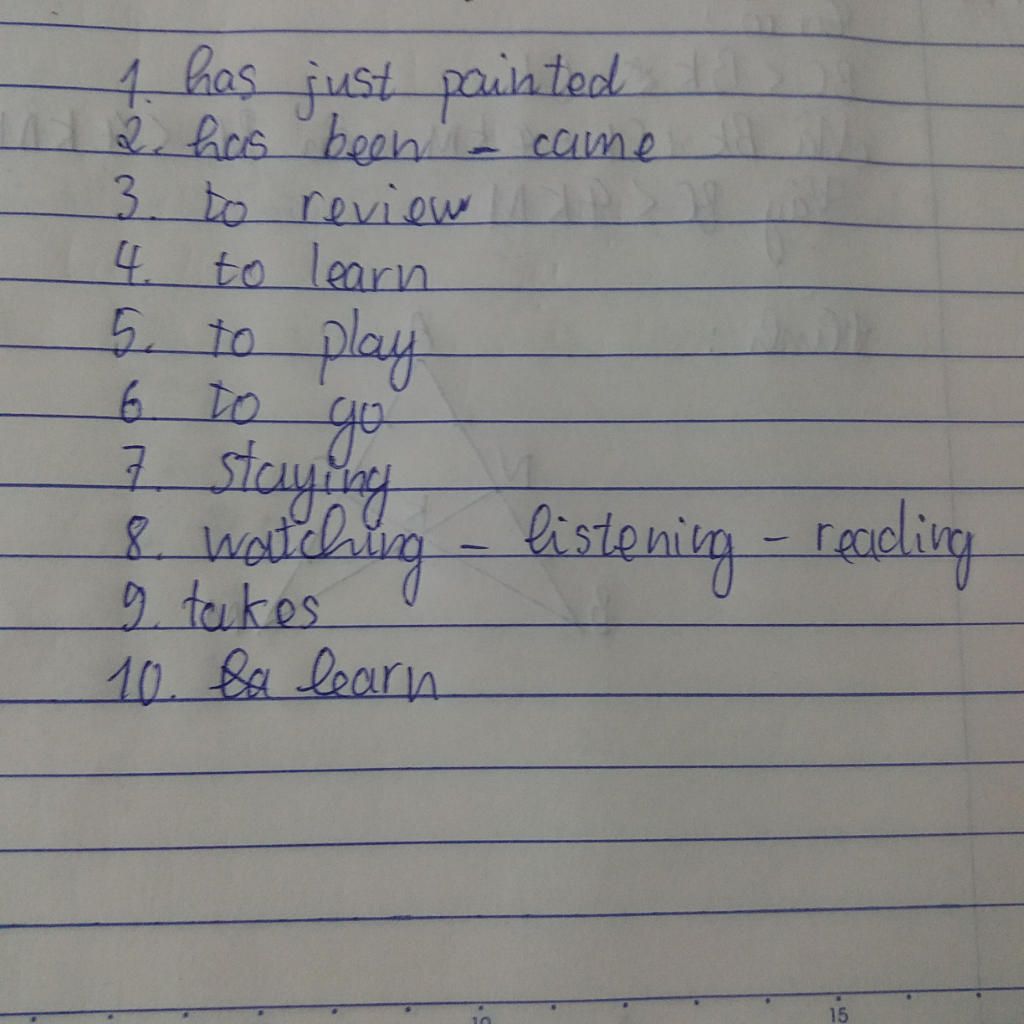 1. has just painted
2. has been - came
3. to review
4. to learn
5. to play
6. to go
7. staying
8. watching - listening - reading
9. takes
10. learn
10 15